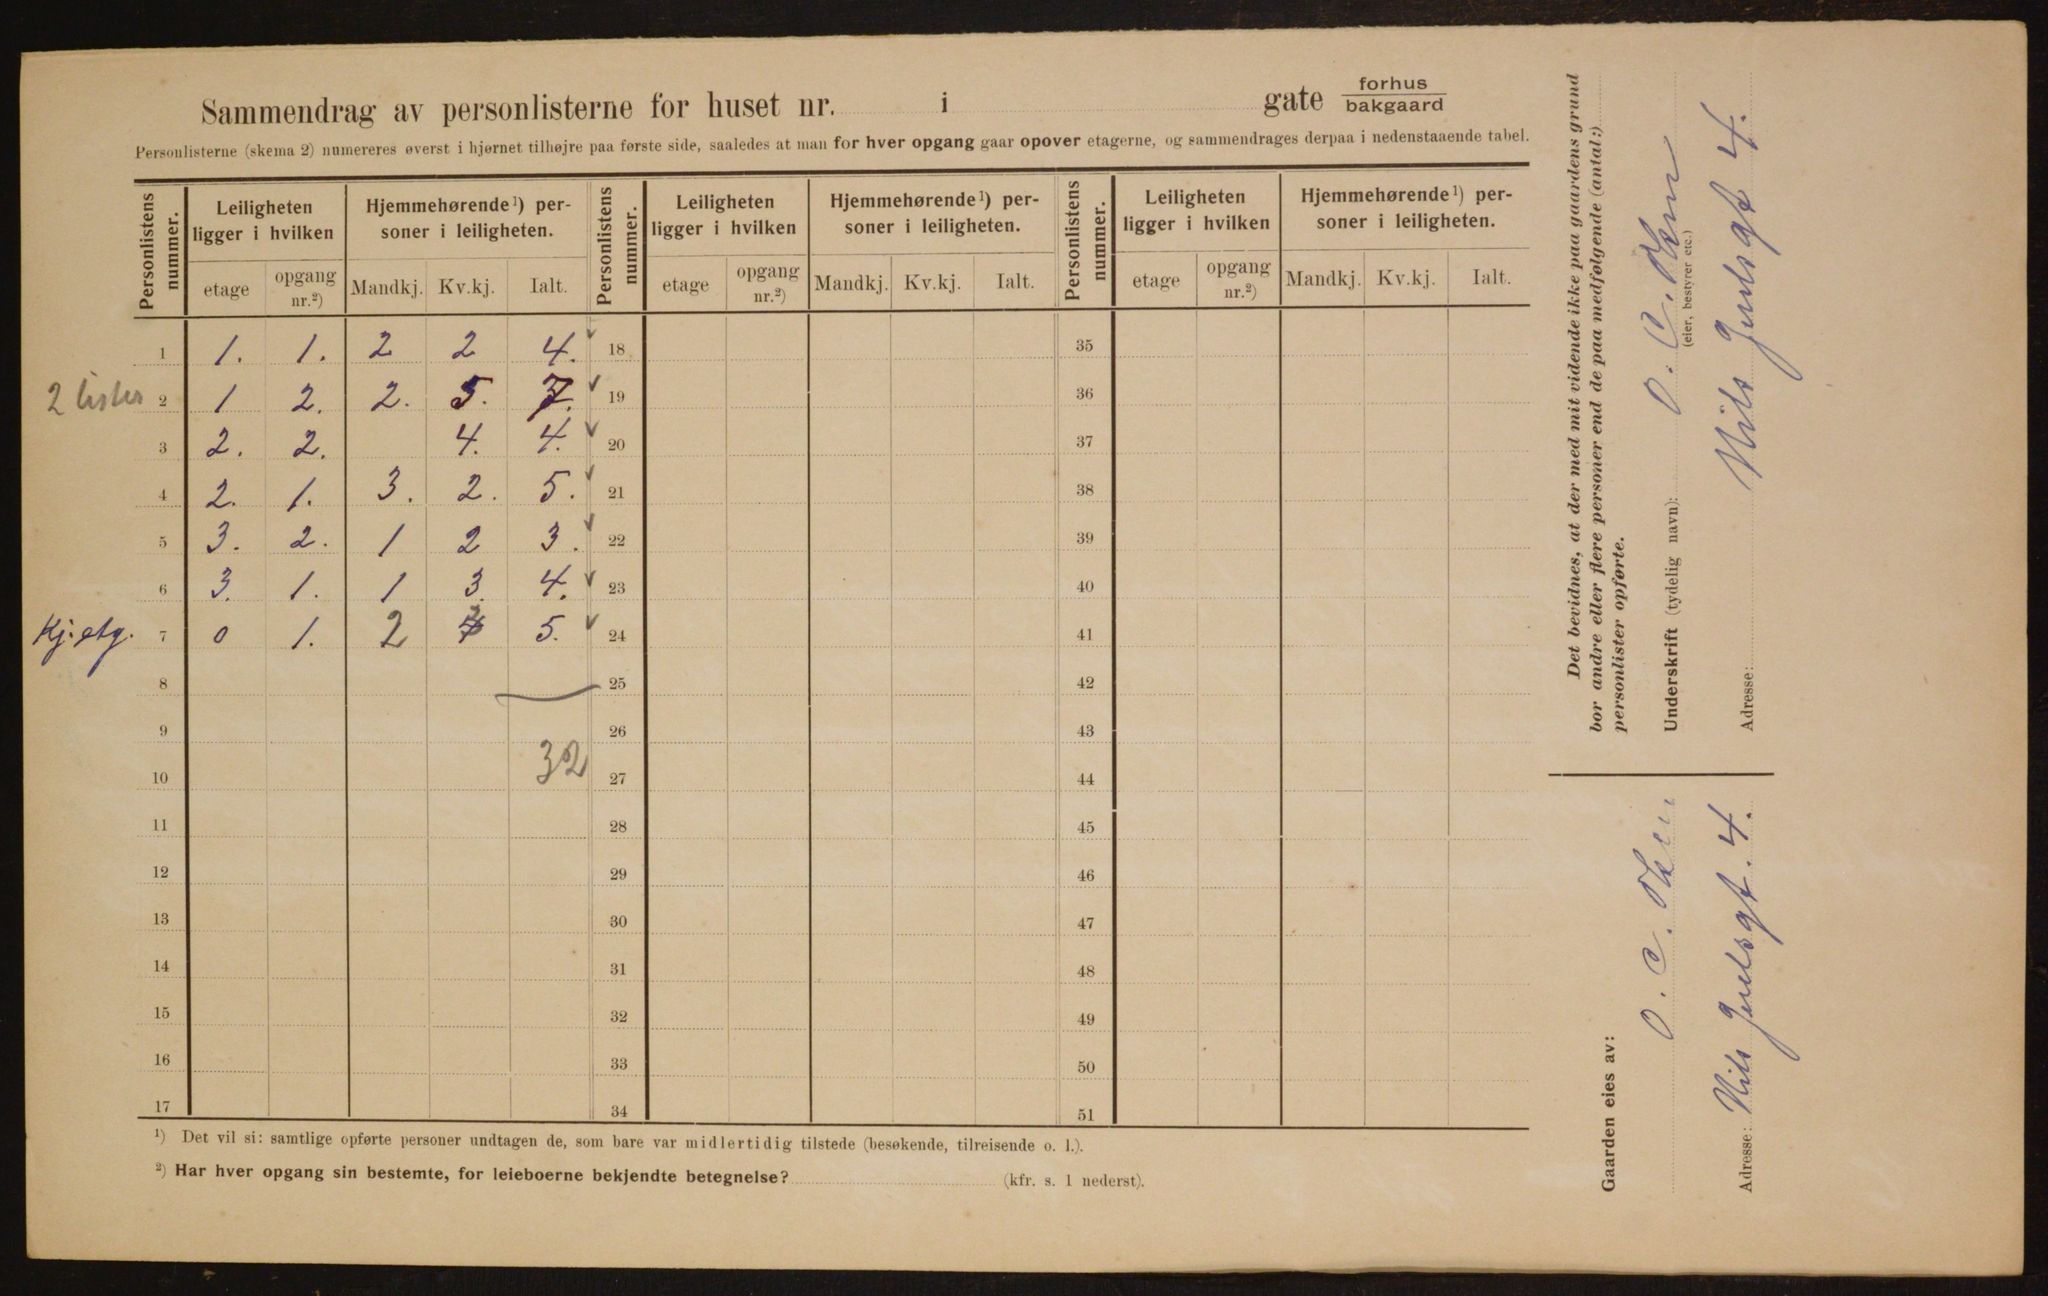 Sammendrag av personlisterne for huset nr. i gate forhus bakgaard
Personlisterne (skema 2) numereres øverst i hjørnet tilhøjre paa første side, saaledes at man for hver opgang gaar opover etagerne, og sammendrages derpaa i nedenstaaende tabel.
Personlistens nummer. Leiligheten ligger i hvilken Hjemmehørende¹) personer i leiligheten. Personlistens nummer. Leiligheten ligger i hvilken Hjemmehørende¹) personer i leiligheten. Personlistens nummer. Leiligheten ligger i hvilken Hjemmehørende¹) personer i leiligheten.
etage opgang nr.²) Mandkj. Kv.kj. Ialt. etage opgang nr.²) Mandkj. Kv.kj. Ialt. etage opgang nr.²) Mandkj. Kv.kj. Ialt.
1 1. 1. 2 2 4. 18 35
2 lister 2 1 2. 2. 5. 7. 19 36
3 2. 2. 4. 4. 20 37
4 2. 1. 3. 2. 5. 21 38
5 3. 2. 1 2 3. 22 39
6 3. 1. 1 3. 4. 23 40
Kj. etg. 7 0 1. 2 5. 24 41
8 25 42
9 26 43
32
10 27 44
11 28 45
12 29 46
13 30 47
14 31 48
15 32 49
16 33 50
17 34 51
¹) Det vil si: samtlige opførte personer undtagen de, som bare var midlertidig tilstede (besøkende, tilreisende o. l.).
²) Har hver opgang sin bestemte, for leieboerne bekjendte betegnelse? (kfr. s. 1 nederst).
Det bevidnes, at der med mit vidende ikke paa gaardens grund
bor andre eller flere personer end de paa medfølgende (antal:)
personlister opførte.
Underskrift (tydelig navn): O. C. Olsen
(eier, bestyrer etc.)
Adresse: Nils Juelsgt 4.
Gaarden eies av:
O. C. Olsen
Adresse: Nils Juelsgt. 4.